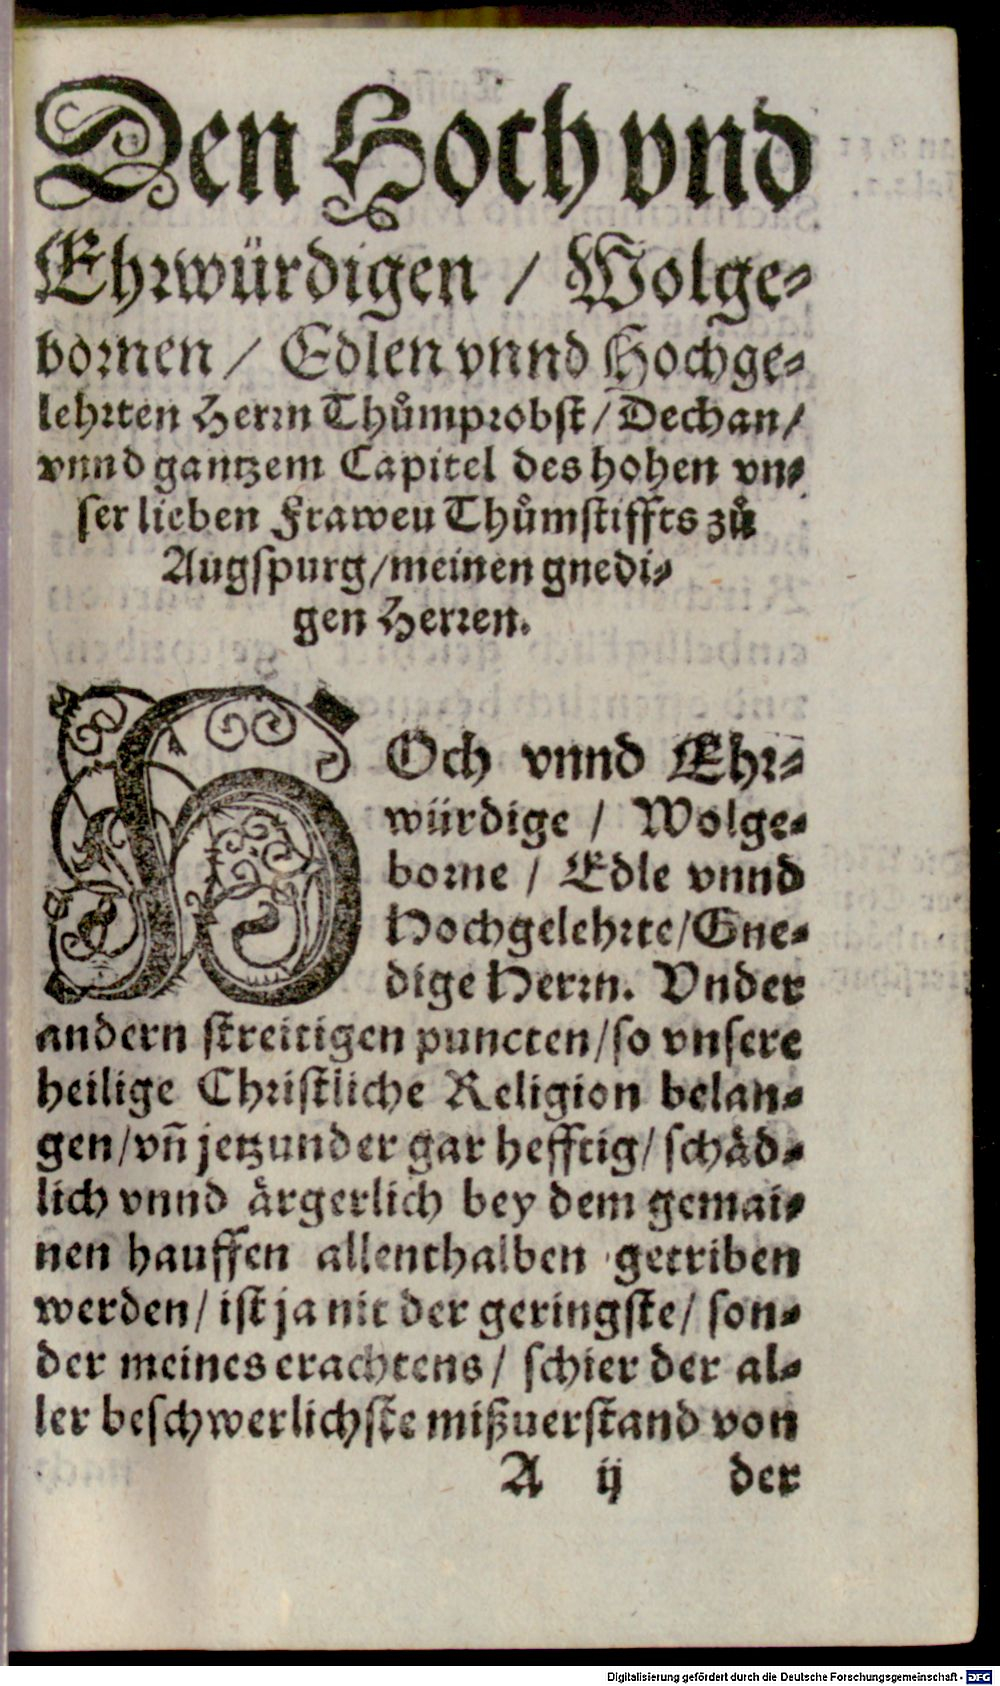 Den Hoch vnd
Ehrwürdigen / Wolge⸗
bornen / Edlen vnnd Hochge⸗
lehrten Herrn Thůmprobst / Dechan /
vnnd gantzem Capitel des hohen vn⸗
ser lieben Frawen Thůmstiffts zů
Augspurg / meinen gnedi⸗
gen Herren.
HOch vnnd Ehr⸗
würdige / Wolge⸗
borne / Edle vnnd
Hochgelehrte / Gne⸗
dige Herrn. Vnder
andern streitigen puncten / so vnsere
heilige Christliche Religion belan⸗
gen / vñ jetzunder gar hefftig / schåd⸗
lich vnnd årgerlich bey dem gemai⸗
nen hauffen allenthalben getriben
werden / ist ja nit der geringste / son⸗
der meines erachtens / schier der al⸗
ler beschwerlichste mißuerstand von
A ij der
Digitalisierung gefördert durch die Deutsche Forschungsgemeinschaft - DFG